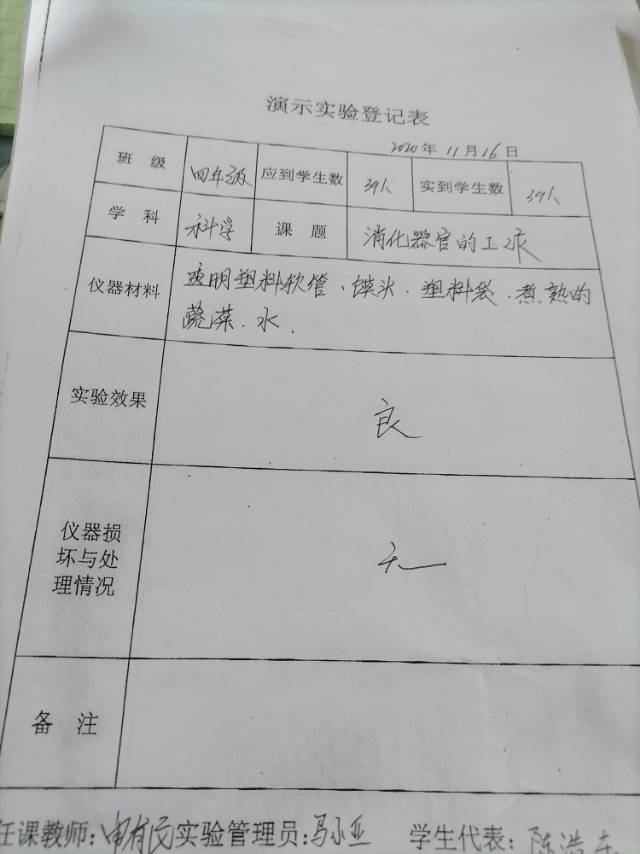 演示实验登记表
2020年11月16日
班级 四年级 应到学生数 39人 实到学生数 39人
学科 科学 课题 消化器官的工作
仪器材料 透明塑料软管、馒头、塑料袋、煮熟的
蔬菜、水、
实验效果 良
仪器损
坏与处
理情况 无
备注
任课教师: 申有 实验管理员:马小亚 学生代表: 陈浩东